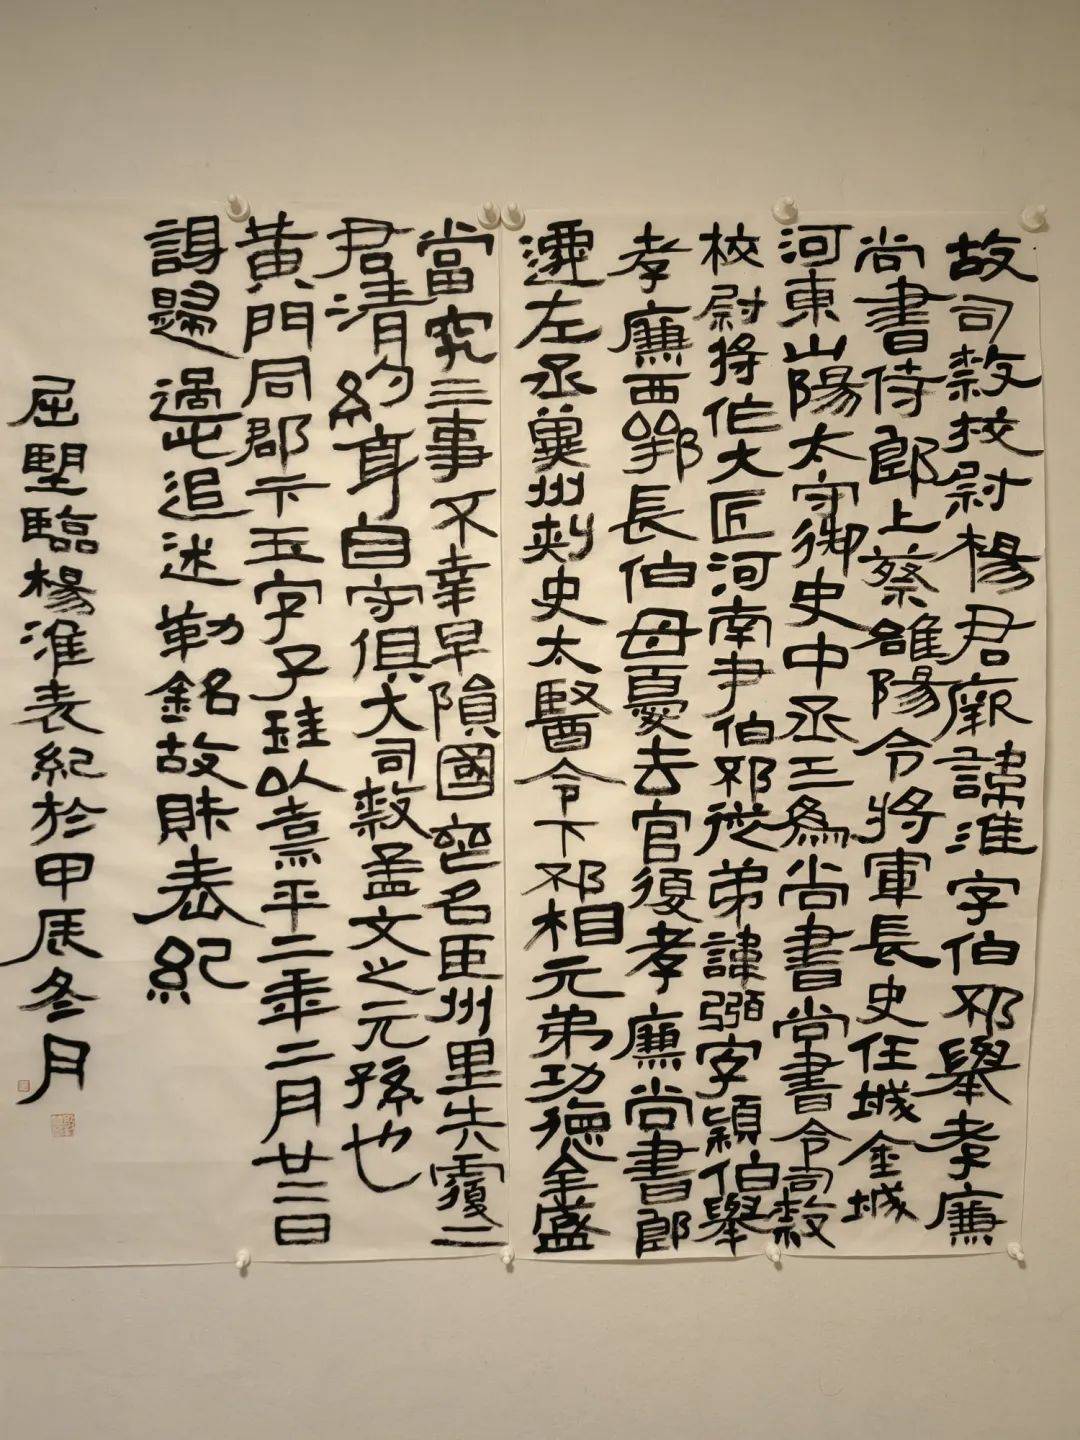 故司隸校尉楊君厥諱淮字伯邳舉孝廉
尚書侍郎上蔡雒陽令將軍長史任城金城
河東山陽太守御史中丞三爲尚書尚書令司隸
校尉將作大匠河南尹伯邳從弟諱弼字穎伯舉
孝廉西鄂長伯母憂去官復孝廉尚書郎
遷左丞冀州刺史太醫令下邳相元弟功德金盛
當究三事不幸早隕國喪名臣州里失覆二
君清約身自守俱大司隸孟文之元孫也
黃門同郡卞玉字子珪以熹平二年二月廿二日
謁歸過此追述勒銘故財表紀
屈塱臨楊淮表紀於甲辰冬月